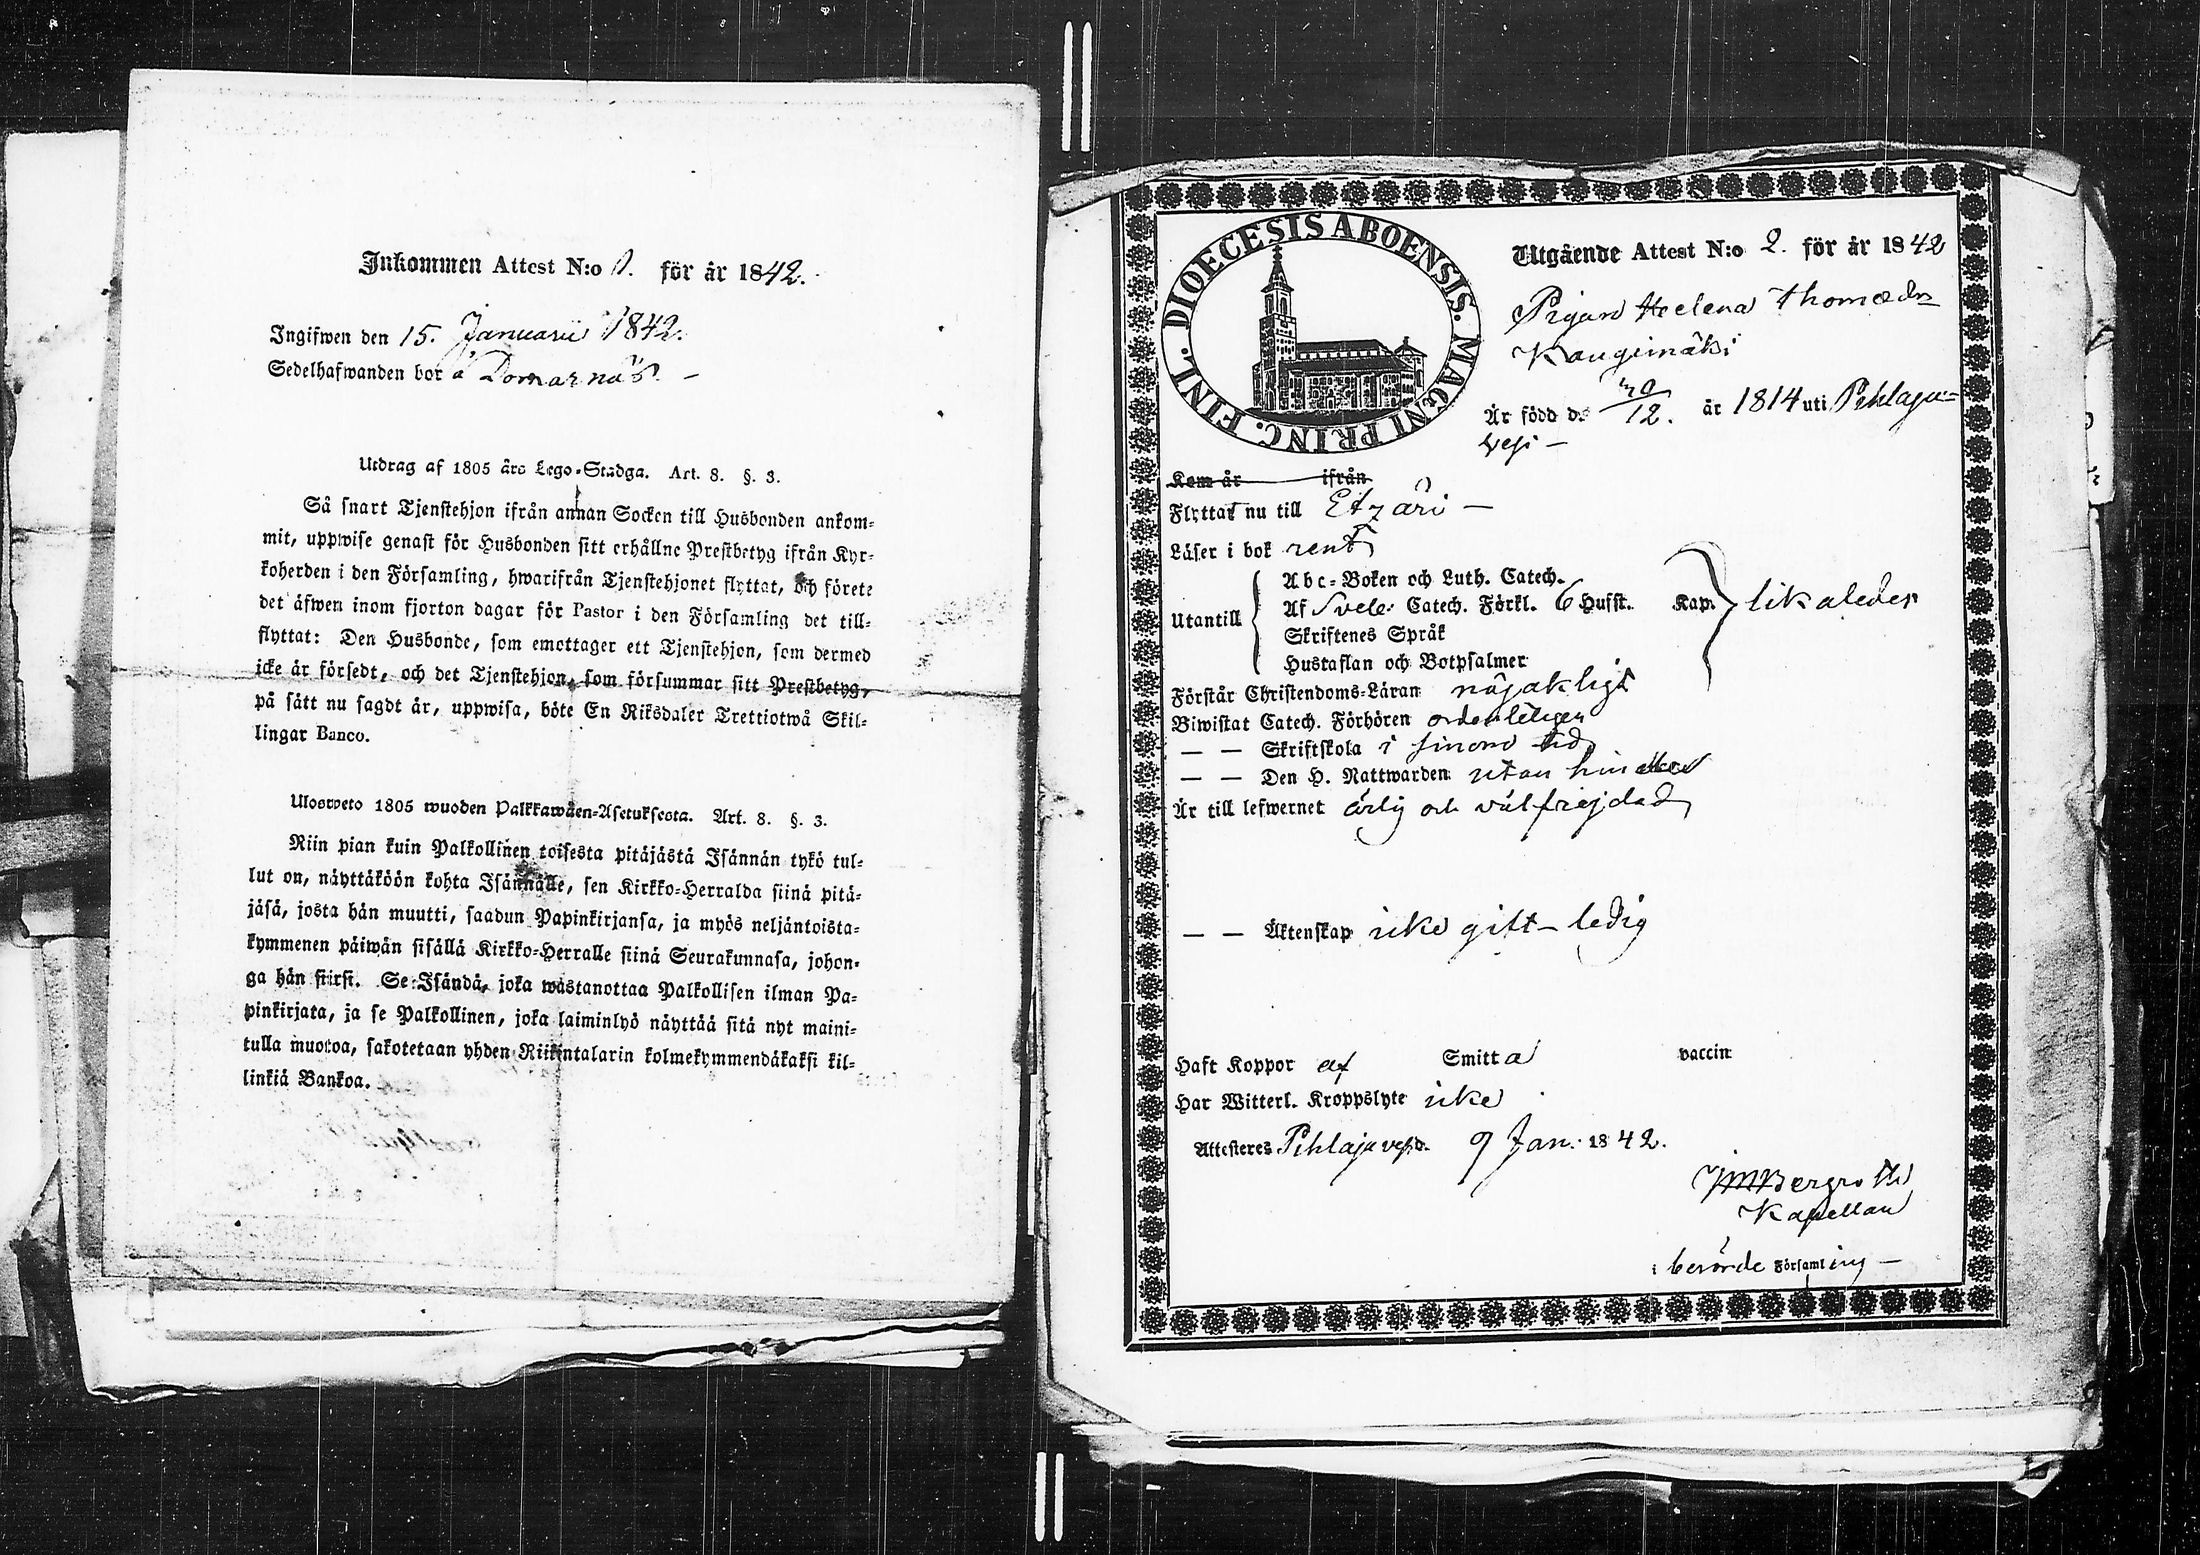 Inkommen Attest N:o 1. för år 1842.
Ingifwen den 15. Januarii 1842.
Sedelhafwanden bor å Domarnäs. –
Utdrag af 1805 års Lego-Stadga. Art. 8. §. 3.
Så snart Tjenstehjon ifrån annan Socken till Husbonden ankom-
mit, uppwise genast för Husbonden sitt erhållne Prestbetyg ifrån Kyr-
koherden i den Församling, hwarifrån Tjenstehjonet flyttat, och förete
det äfwen inom fjorton dagar för Pastor i den Församling det till-
flyttat: Den Husbonde, som emottager ett Tjenstehjon, som dermed
icke är försedt, och det Tjenstehjon, som försummar sitt Prestbetyg,
på sätt nu sagdt är, uppwisa, böte En Riksdaler Trettiotwå Skil-
lingar Banco.
Ulosweto 1805 wuoden Palkkawäen-Asetuksesta. Art. 8. §. 3.
Niin pian kuin Palkollinen toisesta pitäjästä Isännän tykö tul-
lut on, näyttäköön kohta Isännälle, sen Kirkko-Herralda siinä pitä-
jäsä, josta hän muutti, saadun Papinkirjansa, ja myös neljäntoista-
kymmenen päiwän sisällä Kirkko-Herralle siinä Seurakunnasa, johon-
ga hän siirsi. Se Isändä, joka wastanottaa Palkollisen ilman Pa-
pinkirjata, ja se Palkollinen, joka laiminlyö näyttää sitä nyt maini-
tulla muotoa, sakotetaan yhden Riikintalarin kolmekymmendäkaksi kil-
linkiä Bankoa.
DIOECESIS ABOENSIS. MAGNI PRINC. FINL.
Utgående Attest N:o 2. för år 1842
Pigan Helena Thomædr
Kaugimäki
Är född d. 12. år 1814 uti Pihlaja-
vesi –
Kom år ifrån
Flyttar nu till Etzäri –
Läser i bok rent
Abc-Boken och Luth. Catech.
Utantill Af Sveb. Catech. Förkl. 6 Hufst. Kap. likaledes
Skriftenes Språk
Hustaflan och Botpsalmer
Förstår Christendoms-Läran nöjakligt
Biwistat Catech. Förhören ordenteligen
— — Skriftskola i sinom tid
— — Den H. Nattwarden utan hinder
Är till lefwernet ärlig och välfrejdad
— — Äktenskap icke gift – ledig
Haft Koppor af Smitta vaccin
Har Witterl. Kroppslyte icke
Attesteres Pihlajavesi d. 9 Jan. 1842.
JM Bergroth
Kapellan
i berörde Församling –